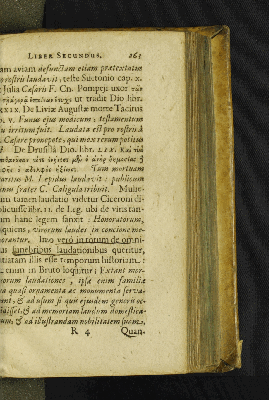 LIBER SECUNDUS. 265
am aviam defunctam etiam prætextatus
rostris laudavit, teste Suetonio cap. x.
Julia Cæsaris F. Cn. Pompeji uxor
ut tradit Dio lib.
XXIX. De Livia Augusta morte Tacitus
b. v. Funus ejus modicum; testamentum
iu irritum fuit. Laudata est pro rostris à
Cæsare pronepote, qui mox rerum potitus
De Drusilla Dio. lib.
Tum mortuam
M. Lepidus laudavit: publicum
frater C. Caligula tribuit. Mulie-
tamen laudatio videtur Ciceroni di-
plicuisse lib. II. de Leg. ubi de viris tan-
um hanc legem sanxit: Honoratorum,
quiens, virorum laudes in concione me-
orantur. Imo verò in totum de omni-
us funebribus laudationibus queritur,
illis esse temporum historiam.
enim in Bruto loquitur: Extant mor-
uorum laudationes, ipsæ enim familiæ
quasi ornamenta ac monumenta serva-
ant, & ad usum si quis ejusdem generis oc-
& ad memoriam laudum domestica-
um, & ad illustrandam nobilitatem suam.
R 4 Quan-